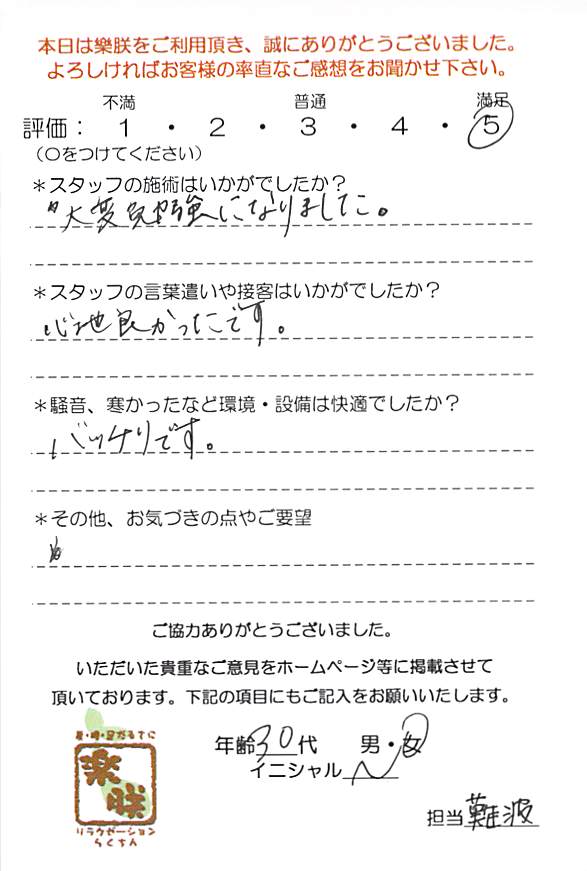 本日は樂朕をご利用頂き、誠にありがとうございました。
よろしければお客様の率直なご感想をお聞かせ下さい。
不満 普通 満足
評価： 1 ・ 2 ・ 3 ・ 4 ・ 5
（○をつけてください）
＊スタッフの施術はいかがでしたか？
大変勉強になりました。
＊スタッフの言葉遣いや接客はいかがでしたか？
心地良かったです。
＊騒音、寒かったなど環境・設備は快適でしたか？
バッチリです。
＊その他、お気づきの点やご要望
ご協力ありがとうございました。
いただいた貴重なご意見をホームページ等に掲載させて
頂いております。下記の項目にもご記入をお願いいたします。
年齢 30 代 男・女
イニシャル N
担当 難波
樂朕
リラクゼーション
らくちん